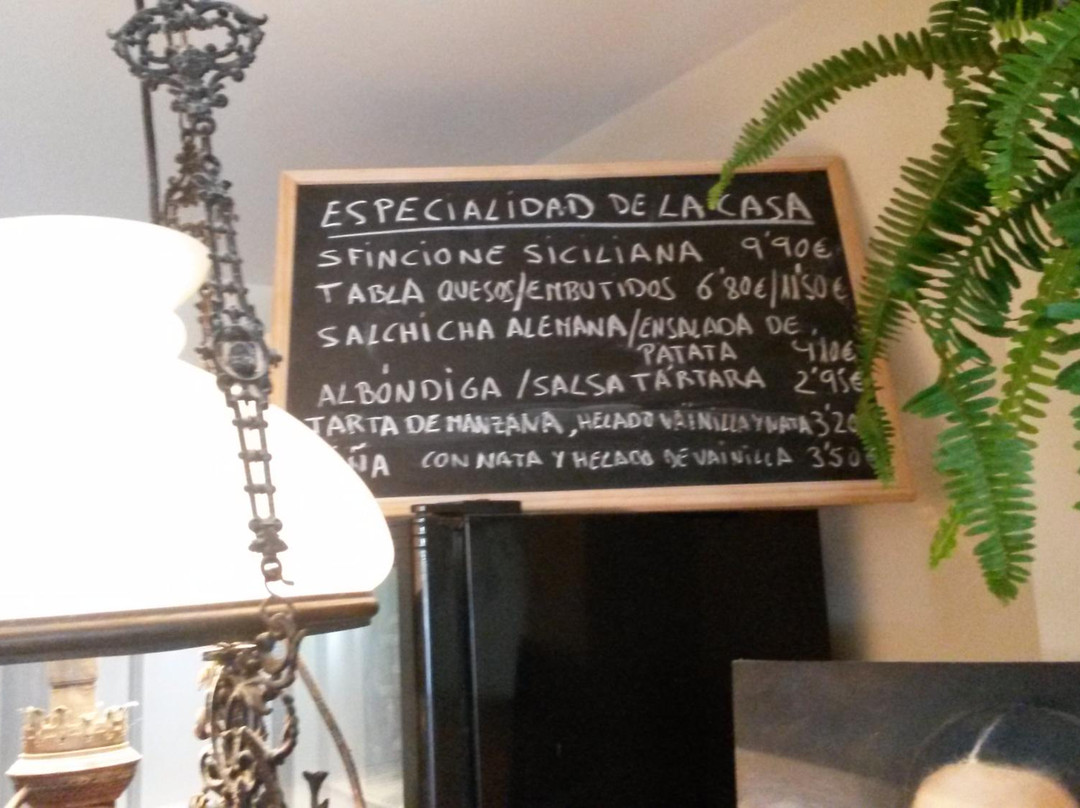 ESPECIALIDAD DE LA CASA
SFINCIONE SICILIANA 9'90€
TABLA QUESOS/EMBUTIDOS 6'80€/11'50€
SALCHICHA ALEMANA/ENSALADA DE
PATATA 4'10€
ALBÓNDIGA /SALSA TÁRTARA 2'95€
TARTA DE MANZANA, HELADO VAINILLA Y NATA 3'20
CON NATA Y HELADO DE VAINILLA 3'50€